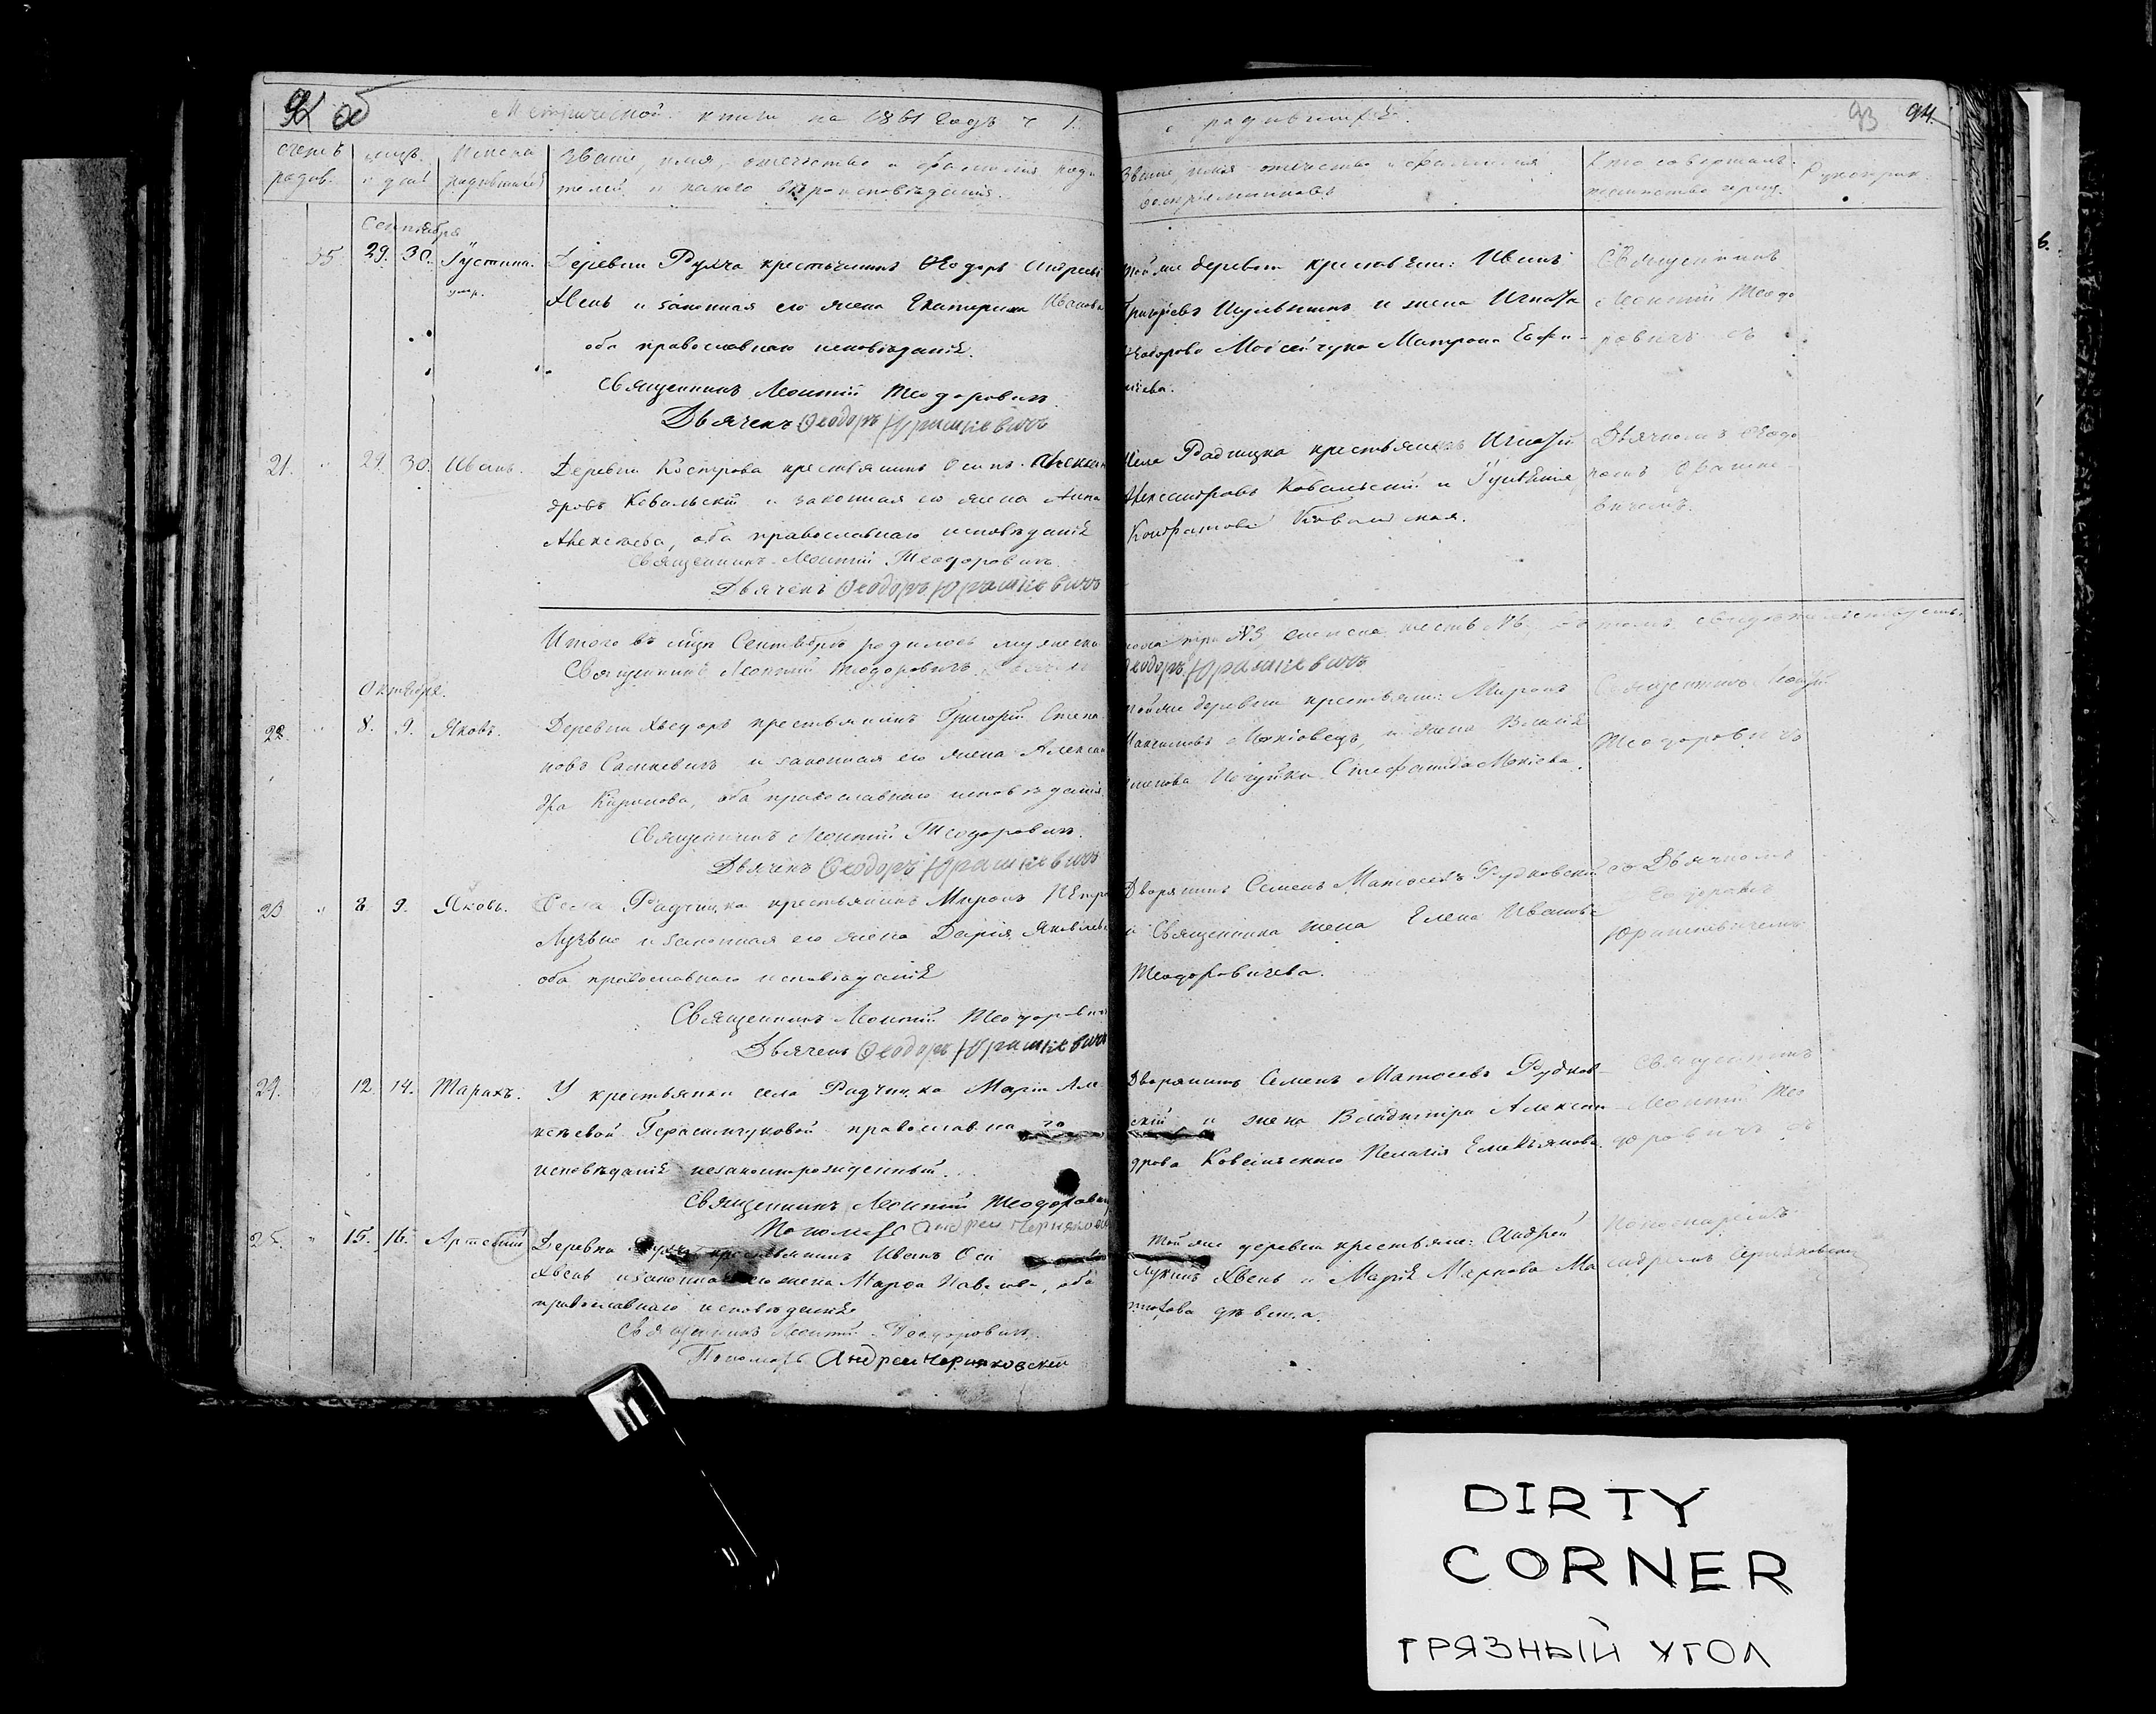 92 об
Метрической книги на 1861 годъ ч. 1.
о родившихся.
93 94.
счетъ родив.
мѣсц. и дни
Имена родившихся
Званіе, имя, отечество и фамилія роди
телей, и какого вѣроисповѣданія.
Званіе, имя отечество и фамилія
воспріемниковъ
Кто совершалъ
таинство крещ.
Рукоприк.
Сентября
15 29. 30. Іустина.
умр.
Деревни Рухча крестьянинъ Ѳеодоръ Андреевъ
Хвень и законная его жена Екатерина Иванова
оба православнаго исповѣданія.
Священникъ Леонтій Теодоровичъ
Дьячекъ Ѳеодоръ Юрашкевичъ
той же деревни крестьяне: Иванъ
Григорьевъ и жена Игнатія
Ѳеодорова Мойсейчука Матрона Евфи-
міева.
Священникъ
Леонтій Теодо
ровичъ съ
21. " 29. 30. Иванъ.
Деревни Кострова крестьянинъ Осипъ Алексан
дровъ Ковальскій и законная его жена Анна
Алексѣева, оба православнаго исповѣданія
Священникъ Леонтій Теодоровичъ
Дьячекъ Ѳеодоръ Юрашкевичъ
Села Радчицка крестьянинъ Игнатій
Александровъ Ковальскій и Іуліанія
Кондратова Ковальская.
Дьячкомъ Ѳеодо
ромъ Юрашке-
вичемъ.
Итого въ мцѣ Сентябрѣ родилось мужеска
пола три №3, женска шесть №6. Въ томъ свидѣтельствуемъ:
Священникъ Леонтій Теодоровичъ Дьячекъ
Ѳеодоръ Юрашкевичъ
Октября.
22. " 8. 9. Яковъ.
Деревни Хведоръ крестьянинъ Григорій Степа
новъ Сашкевичъ и законная его жена Алексан
дра Киринова, оба православнаго исповѣданія.
Священникъ Леонтій Теодоровичъ.
Дьячекъ Ѳеодоръ Юрашкевичъ
той же деревни крестьяне: Миронъ
Максимовъ и жена Василія
Стефанида
Священникъ Леонтій
Теодоровичъ
23 " 8. 9. Яковъ.
Села Радчицка крестьянинъ Миронъ Петро
и законная его жена Дарія Яковлева
оба православнаго исповѣданія
Священникъ Леонтій Теодоровичъ
Дьячекъ Ѳеодоръ Юрашкевичъ
Дворянинъ Семенъ Матвѣевъ Рудковскій
и Священника жена Елена Иванова
Теодоровичева.
съ Дьячкомъ
Ѳеодоромъ
Юрашкевичемъ
24. " 12. 14. Тарахъ.
У крестьянки села Радчицка Маріи Але
ксѣевой Герасимчуковой православнаго
исповѣданія незаконнорожденный.
Священникъ Леонтій Теодоровичъ
Пономарь Андрей Черняковскій
Дворянинъ Семенъ Матвѣевъ Рудков-
скій и жена Владиміра Алексан
дрова Ковальскаго Пелагія Емельянова.
Священникъ
Леонтій Тео
доровичъ съ
25. " 15. 16. Артемій
Деревни Рухча крестьянинъ Иванъ Оси
Хвень и законная его жена Марѳа Павлова, оба
православнаго исповѣданія
Священникъ Леонтій Теодоровичъ.
Пономарь Андрей Черняковскій
той же деревни крестьяне: Андрей
Лукинъ Хвень и Марія Маркова Ма
дѣвица.
Пономаремъ
Андреемъ Черняковскимъ
DIRTY
CORNER
ГРЯЗНЫЙ УГОЛ